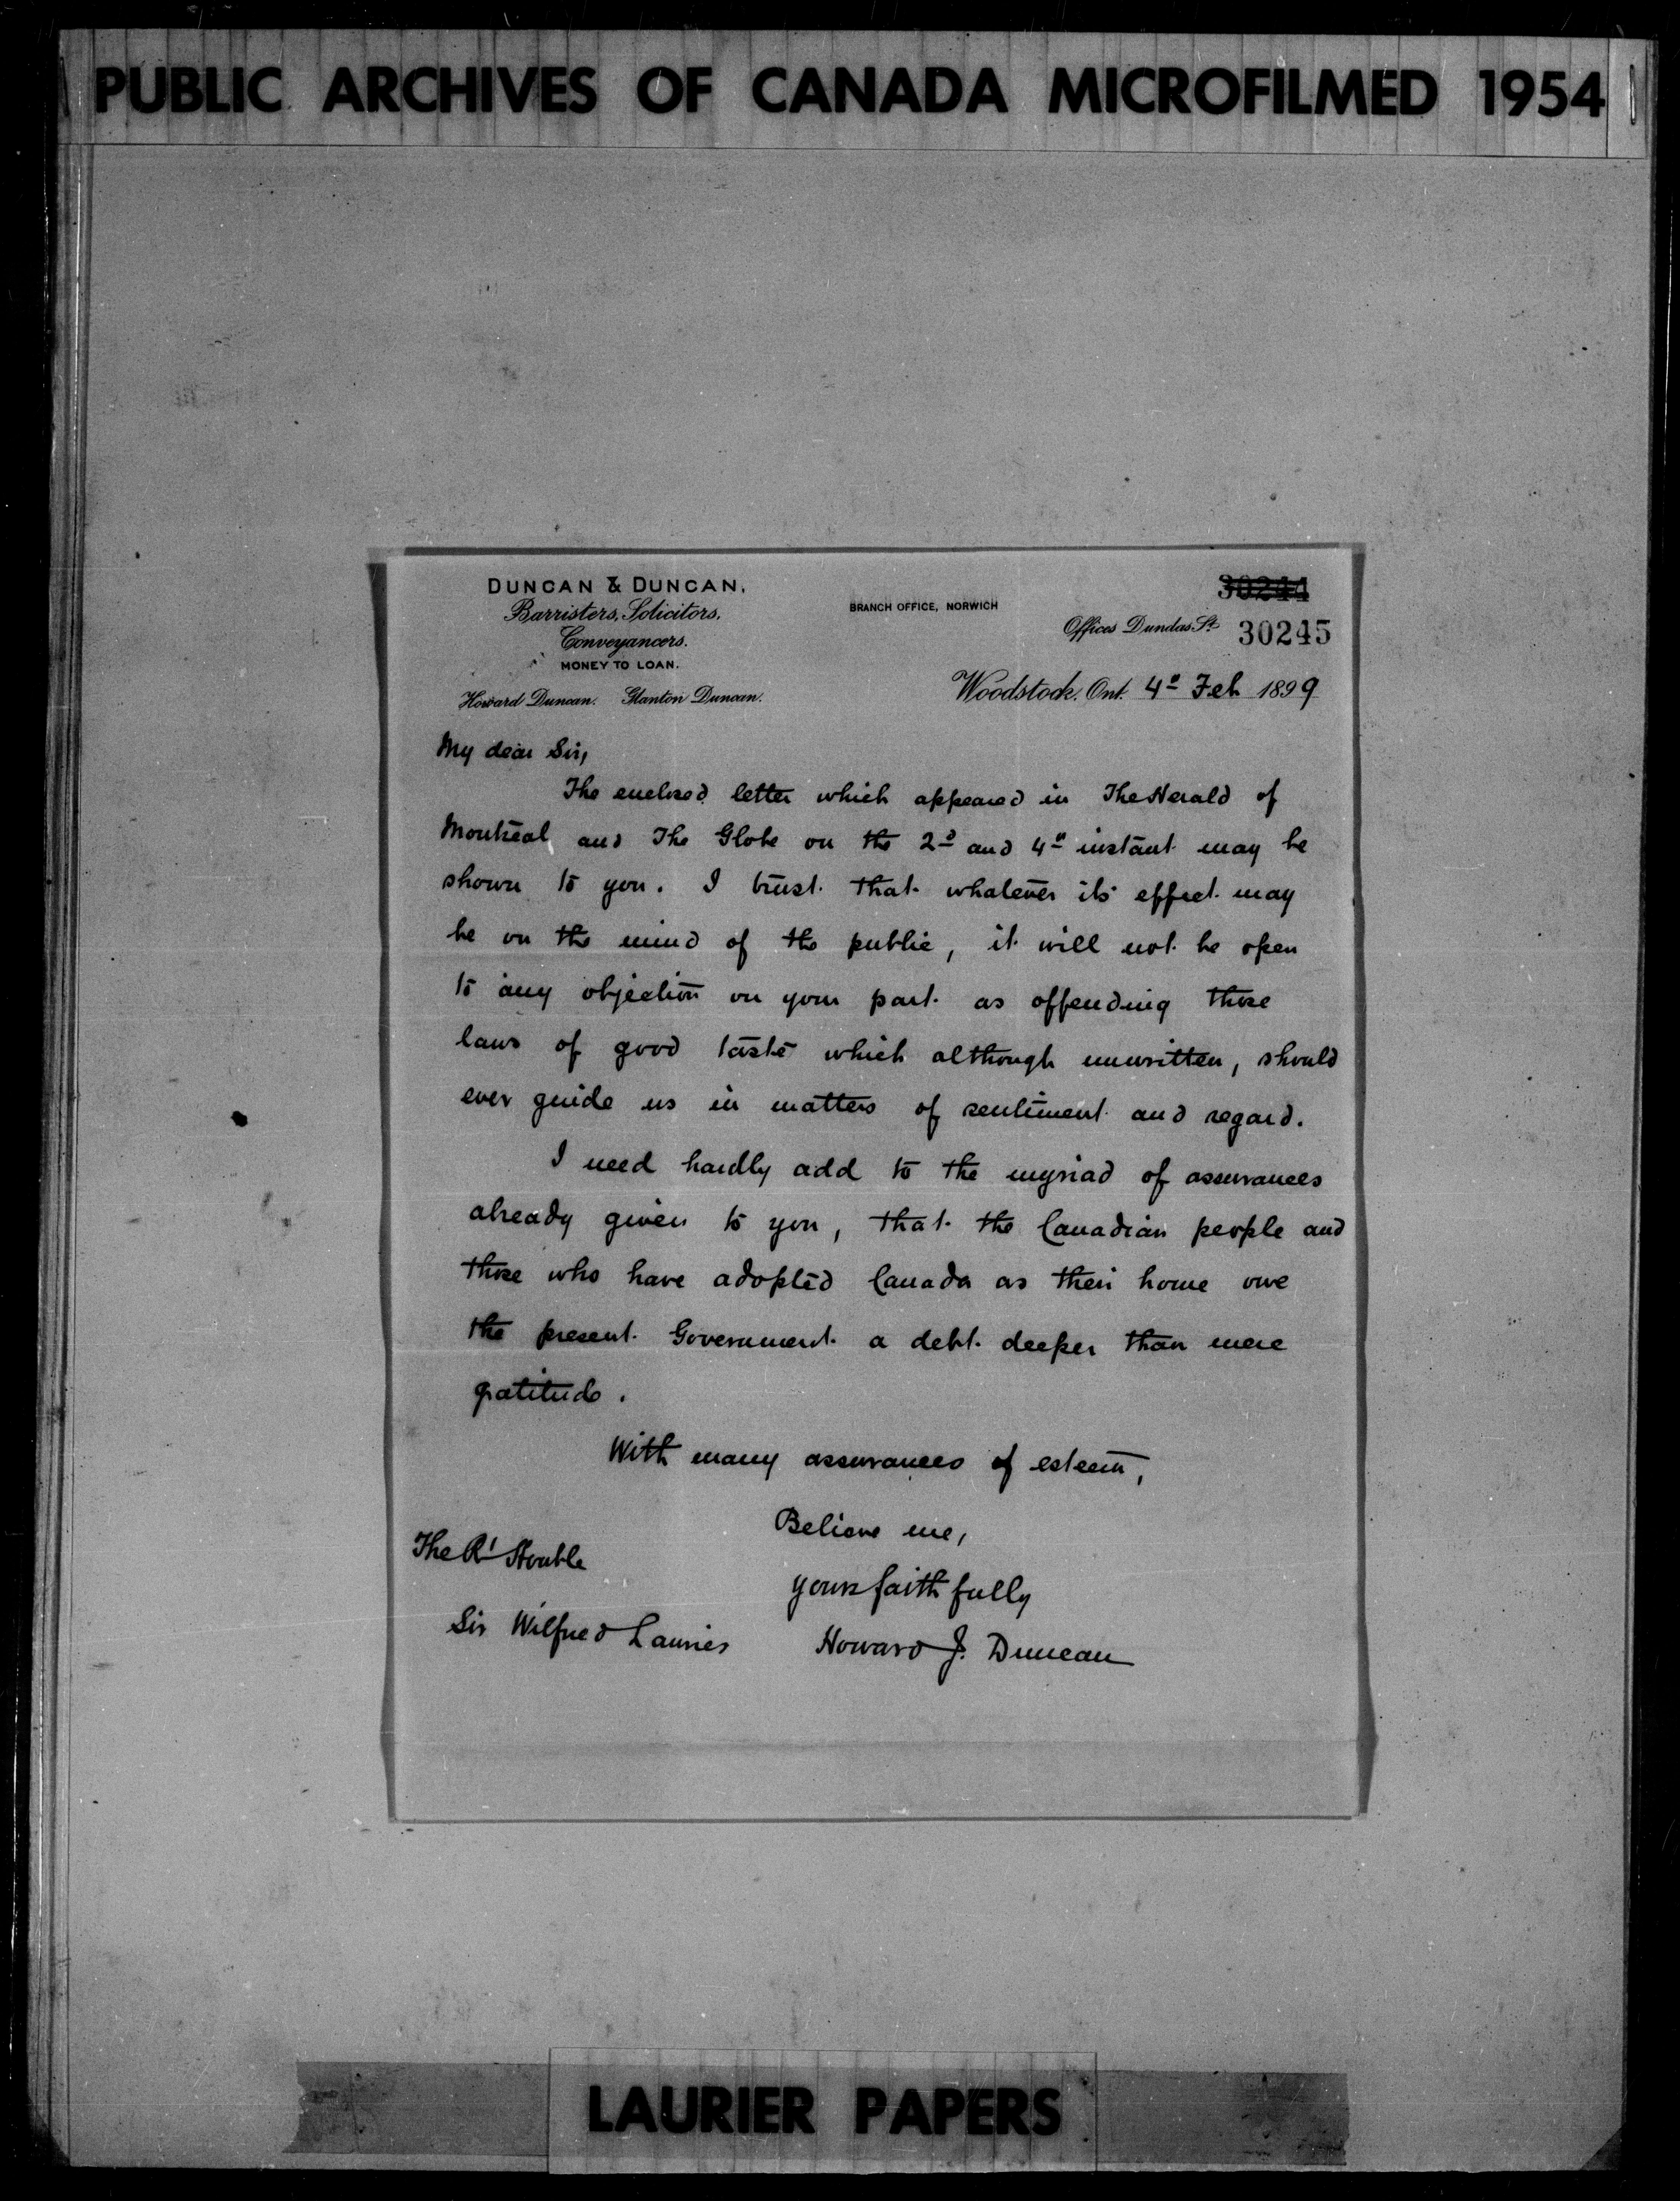 PUBLIC ARCHIVES OF CANADA MICROFILMED 1954
DUNCAN & DUNCAN,
Barristers, Solicitors,
Conveyancers.
MONEY TO LOAN.
Howard Duncan. Glanton Duncan.
BRANCH OFFICE, NORWICH
30244
Offices Dundas St.
30245
Woodstock, Ont. 4th Feb 1899
My dear Sir,
The enclosed letter which appeared in The Herald of
Montreal and The Globe on the 2d and 4th instant may be
shown to you. I trust that whatever its effect may
be on the mind of the public, it will not be open
to any objection on your part as offending those
laws of good taste which although unwritten, should
ever guide us in matters of sentiment and regard.
I need hardly add to the myriad of assurances
already given to you, that the Canadian people and
those who have adopted Canada as their home owe
the present Government a debt deeper than mere
gratitude.
With many assurances of esteem,
Believe me,
yours faithfully
Howard J. Duncan
The Rt Honble
Sir Wilfred Laurier
LAURIER PAPERS